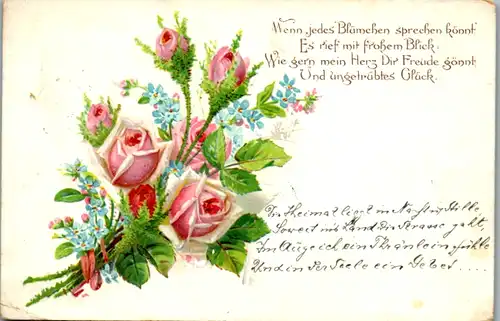 Wenn jedes Blümchen sprechen könnt
Es rief mit frohem Blick:
Wie gern mein Herz Dir Freude gönnt
Und ungetrübtes Glück.
In Heimat liegt in Nacht und Stille
Soweit ins Land die Krone geht,
Im Auge ich ein Thränlein fühle
Und in der Seele ein Gebet ....